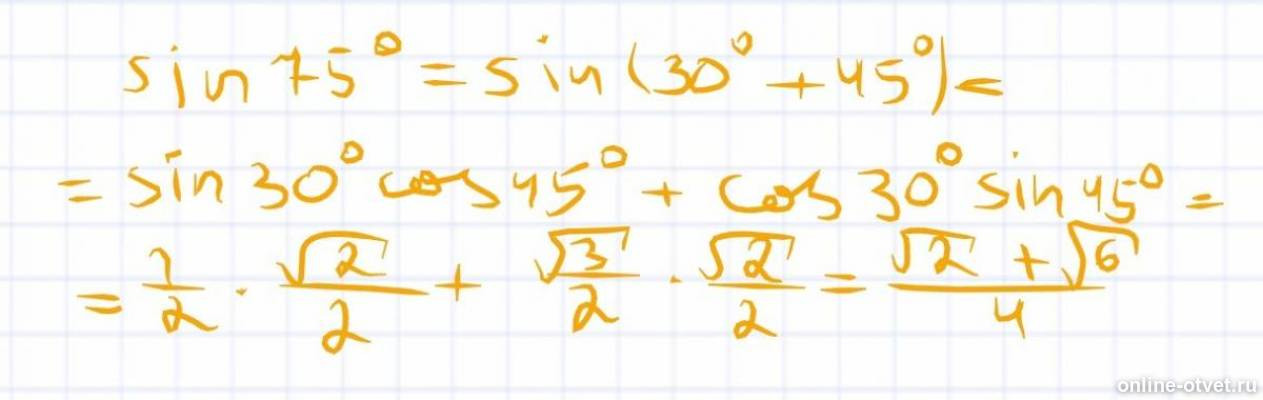 sin 75° = sin(30° + 45°) =
= sin 30° cos 45° + cos 30° sin 45° =
= 1/2 · √2/2 + √3/2 · √2/2 = (√2 + √6)/4
online-otvet.ru